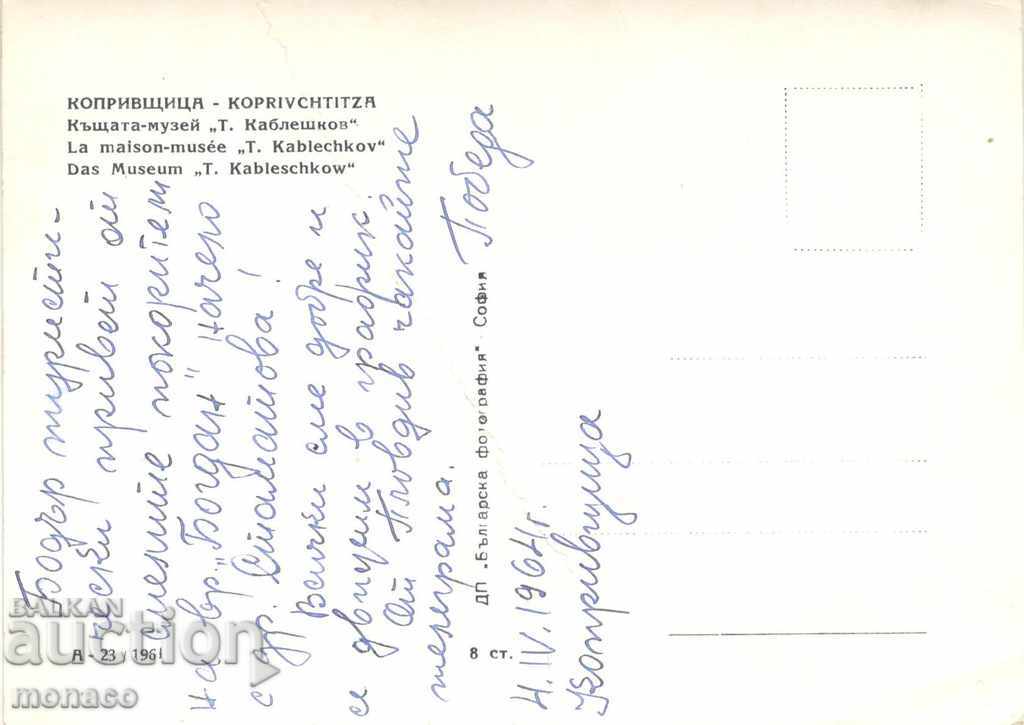 КОПРИВЩИЦА - KOPRIVCHTITZA
Къщата-музей „Т. Каблешков“
La maison-musée „T. Kablechkov“
Das Museum „T. Kableschkow“
Бодър туристи-
чески привет от
смелите покорители
на вр. „Богдан“ начело
с др. Стаматова!
Всички сме добре и
се движим в график.
От Пловдив чакайте
телеграма.
Победа
4.IV.1964г.
Копривщица
ДП „Българска фотография“ - София
А - 23 / 1961
8 ст.
BALKAN
auction
monaco